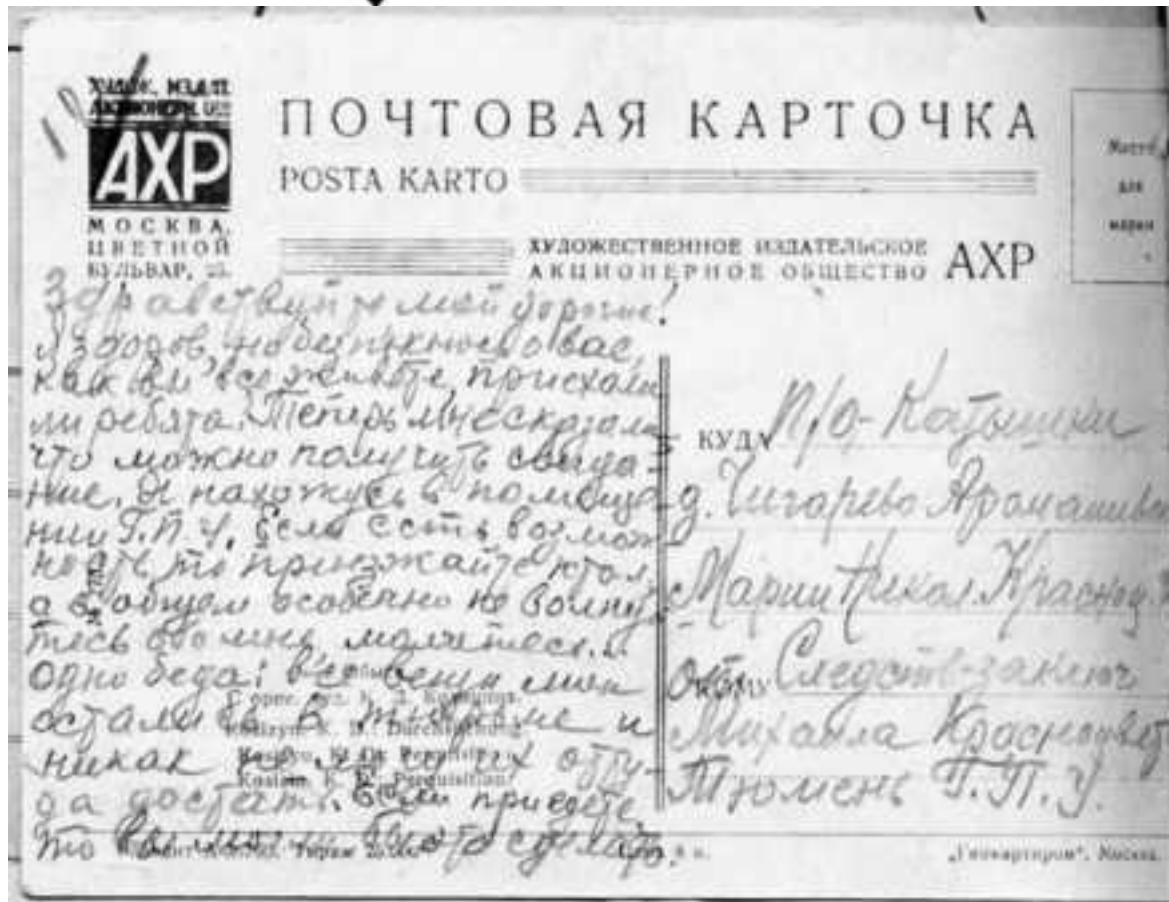 ХУДОЖ. ИЗДАТ.
АКЦИОНЕРН. О-ВО
АХР
МОСКВА,
ЦВЕТНОЙ
БУЛЬВАР, 25.
ПОЧТОВАЯ КАРТОЧКА
POSTA KARTO
ХУДОЖЕСТВЕННОЕ ИЗДАТЕЛЬСКОЕ
АКЦИОНЕРНОЕ ОБЩЕСТВО АХР
Место
для
марки
Здравствуйте мои дорогие!
Я здоров, но о вас,
как вы все живете, приехали
ли ребята. Теперь мне сказали
что можно получить свида-
ние, я нахожусь в помеще-
нии Г.П.У. Если есть возмож
ность, то приезжайте
а в общем особенно не волнуй
тесь обо мне, молитесь...
одно беда: все вещи мои
остались в и
никак не могу их отту-
да достать. Если приедете,
то сделать.
КУДА П/О-Катышки
д. Чигарево
Марии Никол. Красноцв
КОМУ
от Следств-заключ
Михаила Красноцвет
Тюмень Г.П.У.
С орг. худ.
Kosizyn K. D.: Durchsuchung
Kosizin, K. D.: Perquisition
Тираж
„Гознакартпром“, Москва.